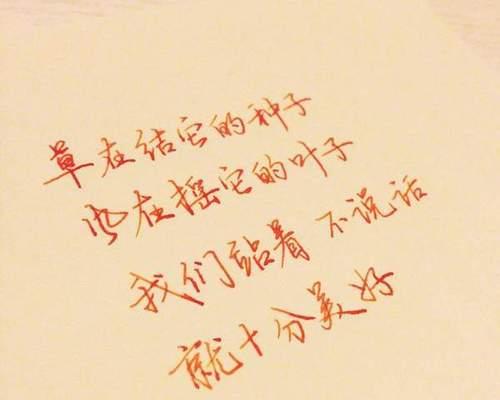 草在结它的种子
风在摇它的叶子
我们站着不说话
就十分美好